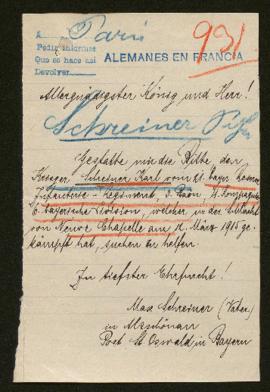 A Paris
Pedir informes
Que se hace así
Devolver
931
ALEMANES EN FRANCIA
Allergnädigster König und Herr!
Schreiner
Gestatte mir die Bitte, den
Krieger Schreiner Karl vom 21. bayer. Reserve
Infanterie-Regiment, 4. Kompagnie
6 bayerische Division, welcher in der Schlacht
von Neuve Chapelle am 12. März 1915 ge-
kämpft hat, suchen zu helfen.
In tiefster Ehrfurcht!
Max Schreiner (Vater)
in
Post St. Oswald in Bayern